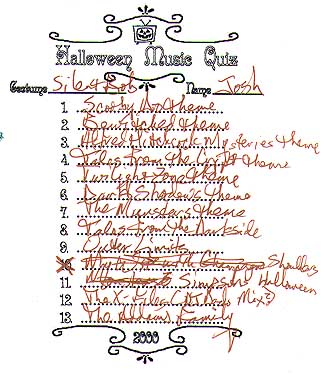 Halloween Music Quiz
Costume Silent Bob Name Josh
1. Scooby Doo theme
2. Bewitched theme
3. Alfred Hitchcock Mysteries theme
4. Tales From the Crypt theme
5. Twilight Zone theme
6. Dark Shadows theme
7. The Munsters theme
8. Tales From the Darkside
9. Outer Limits
10.
11. Simpsons Halloween
12. The X-Files (NIN Mix?)
13. The Addams Family
2000